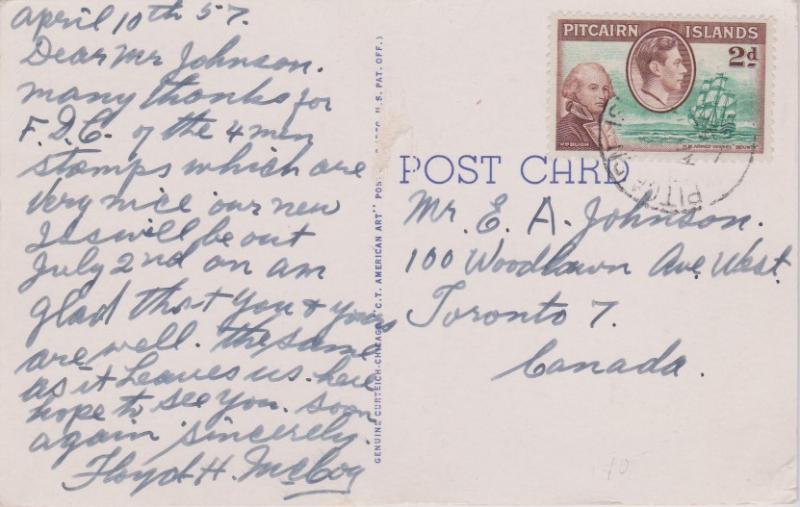 April 10th 57.
Dear Mr Johnson.
many thanks for
F.D.C. of the 4 men
stamps which are
very nice our new
Iss will be out
July 2nd on am
glad that you & yours
are well. the same
as it Leaves us. here
hope to see you. soon
again sincerely.
Floyd H. McCoy
GENUINE CURTEICH-CHICAGO "C.T. AMERICAN ART" POST U.S. PAT. OFF.)
PITCAIRN ISLANDS
2d
WM BLIGH
POST CARD
Mr. E. A. Johnson.
100 Woodlawn Ave. West.
Toronto 7.
Canada.
10